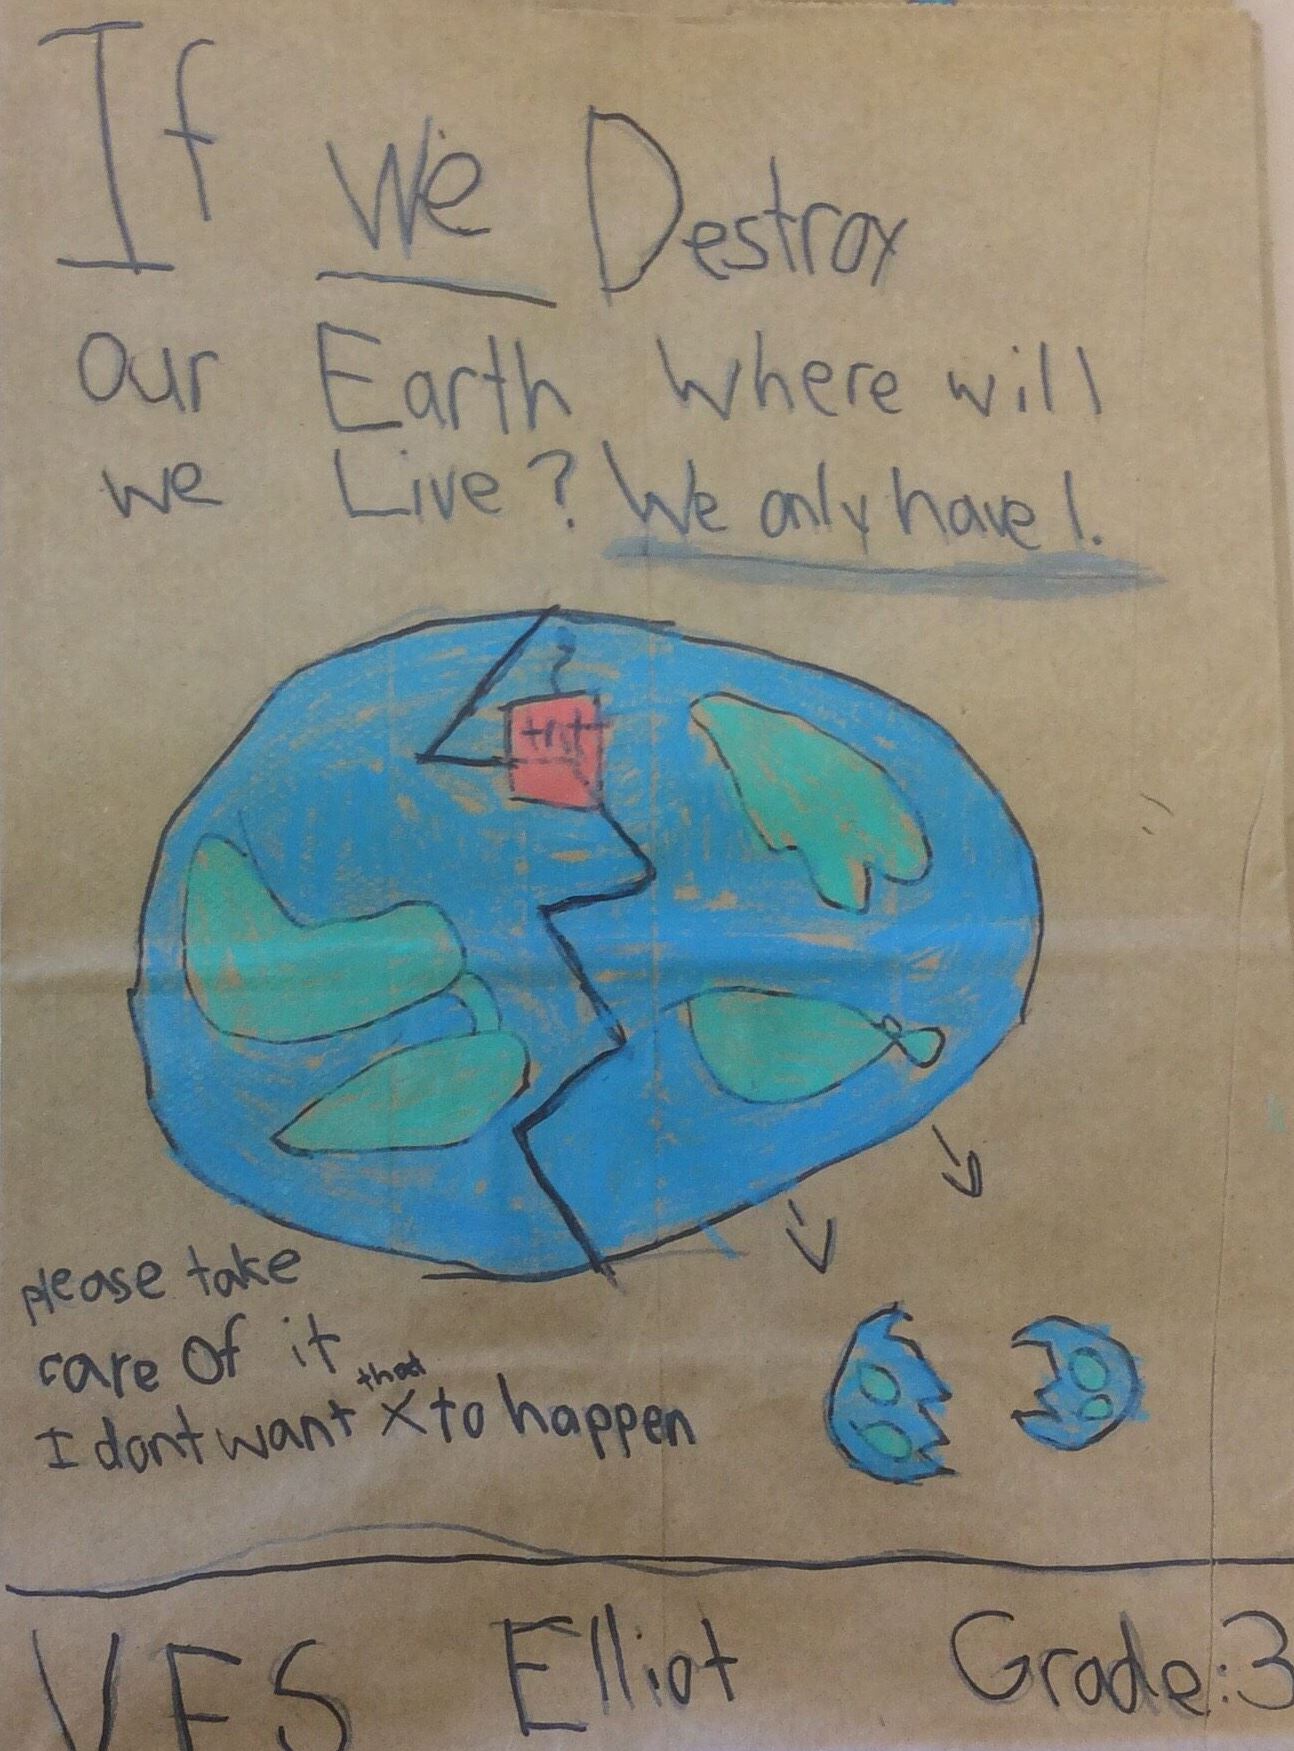 If We Destroy
Our Earth Where will
we Live? We only have 1.
tnt
please take
care Of it
that
I dont want X to happen
VES Elliot Grade:3